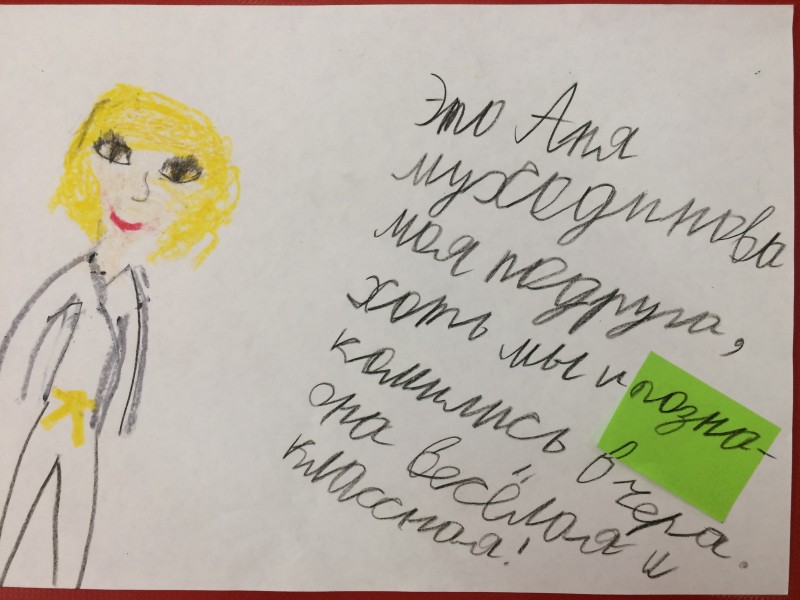 Это Аня
муходинова
моя подруга,
хоть мы и позна-
комились вчера.
она весёлая и
классная!